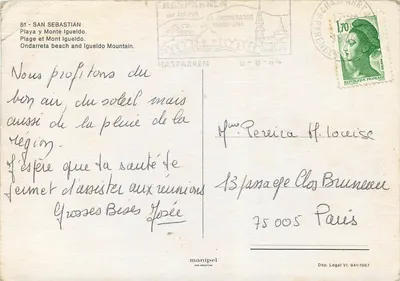 51 - SAN SEBASTIAN
Playa y Monte Igueldo.
Plage et Mont Igueldo.
Ondarreta beach and Igueldo Mountain.
HASPARREN
HASPARREN
1,70
Nous profitons du
bon air, du soleil mais
aussi de la pluie de la
région.
J'espère que ta santé te
permet d'assister aux réunions
Grosses Bises Josée
Mme Pereira M. Louise
13 passage Clos Bruneau
75005 Paris
manipel
Dep. Legal VI. 641-1967